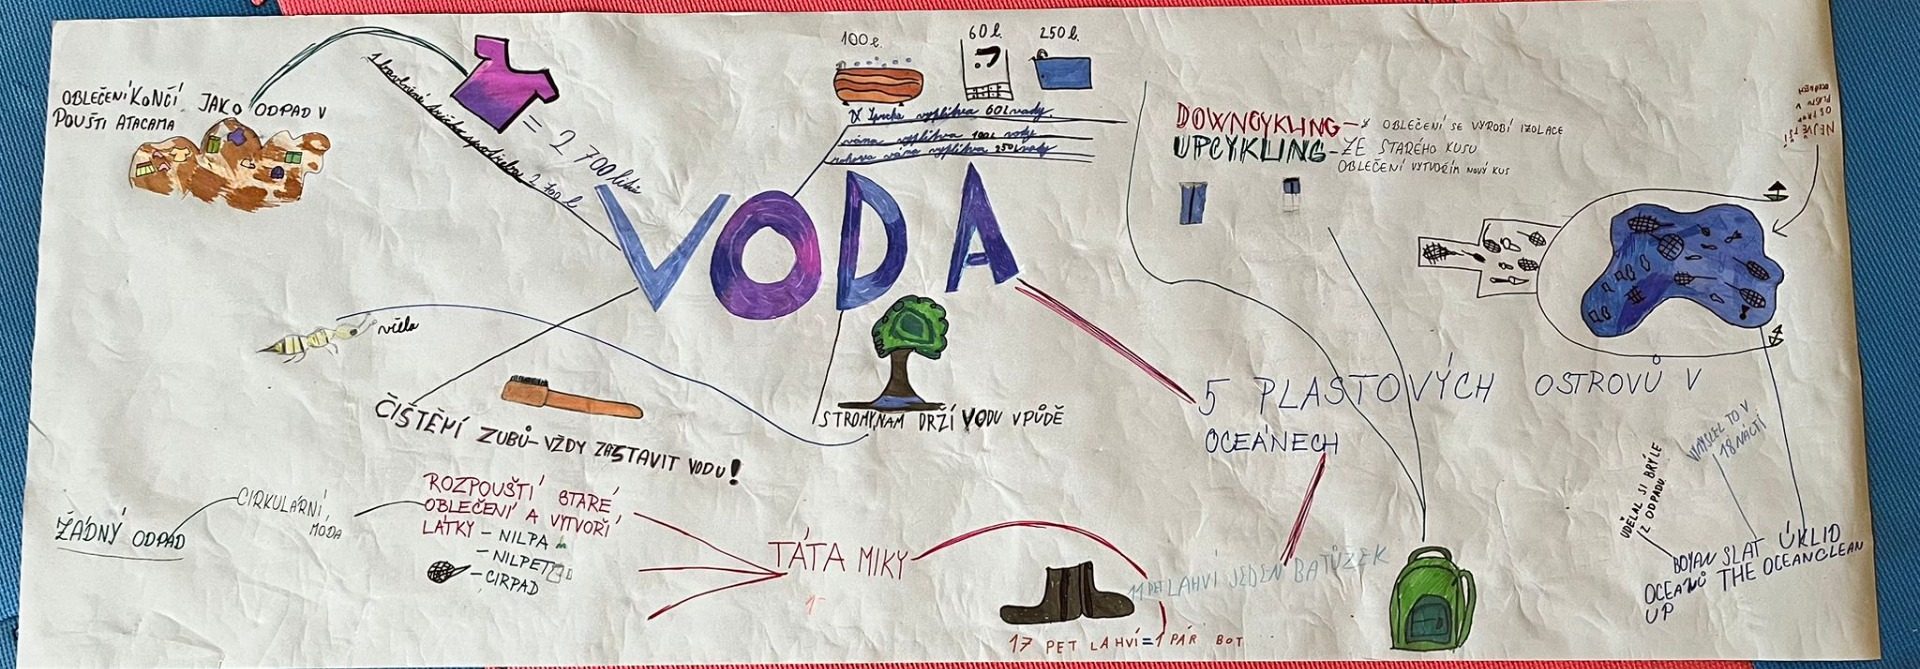 OBLEČENÍ KONČÍ JAKO ODPAD V
POUŠTI ATACAMA
1 bavlněné tričko spotřebu 2 700 l
= 2 700 litrů
100 l.
60 l.
250 l.
sprcha vyplýtvá 60 l vody
vána vyplýtva 100 l vody
rohova vána vyplýtva 250 l vody
VODA
DOWNCYKLING - z OBLEČENÍ SE VYROBÍ IZOLACE
UPCYKLING - ZE STARÉHO KUSU
OBLEČENÍ VYTVOŘÍM NOVÝ KUS
NEJVĚTŠÍ
OSTROV
PLASTU V
včela
ČIŠTĚNÍ ZUBŮ - VŽDY ZASTAVIT VODU!
STROMY NÁM DRŽÍ VODU V PŮDĚ
5 PLASTOVÝCH OSTROVŮ V
OCEÁNECH
ŽÁDNÝ ODPAD
CIRKULÁRNÍ
MÓDA
ROZPOUŠTÍ STARÉ
OBLEČENÍ A VYTVOŘÍ
LÁTKY - NILPA
- NILPET
- CIRPAD
TÁTA MIKY
11 PET LAHVÍ JEDEN BATŮZEK
17 PET LAHVÍ = 1 PÁR BOT
UDĚLAL SI BRÝLE
Z ODPADU
VYMYSLEL TO V
18NÁCTI
BOYAN SLAT ÚKLID
OCEÁNŮ THE OCEANCLEAN
UP